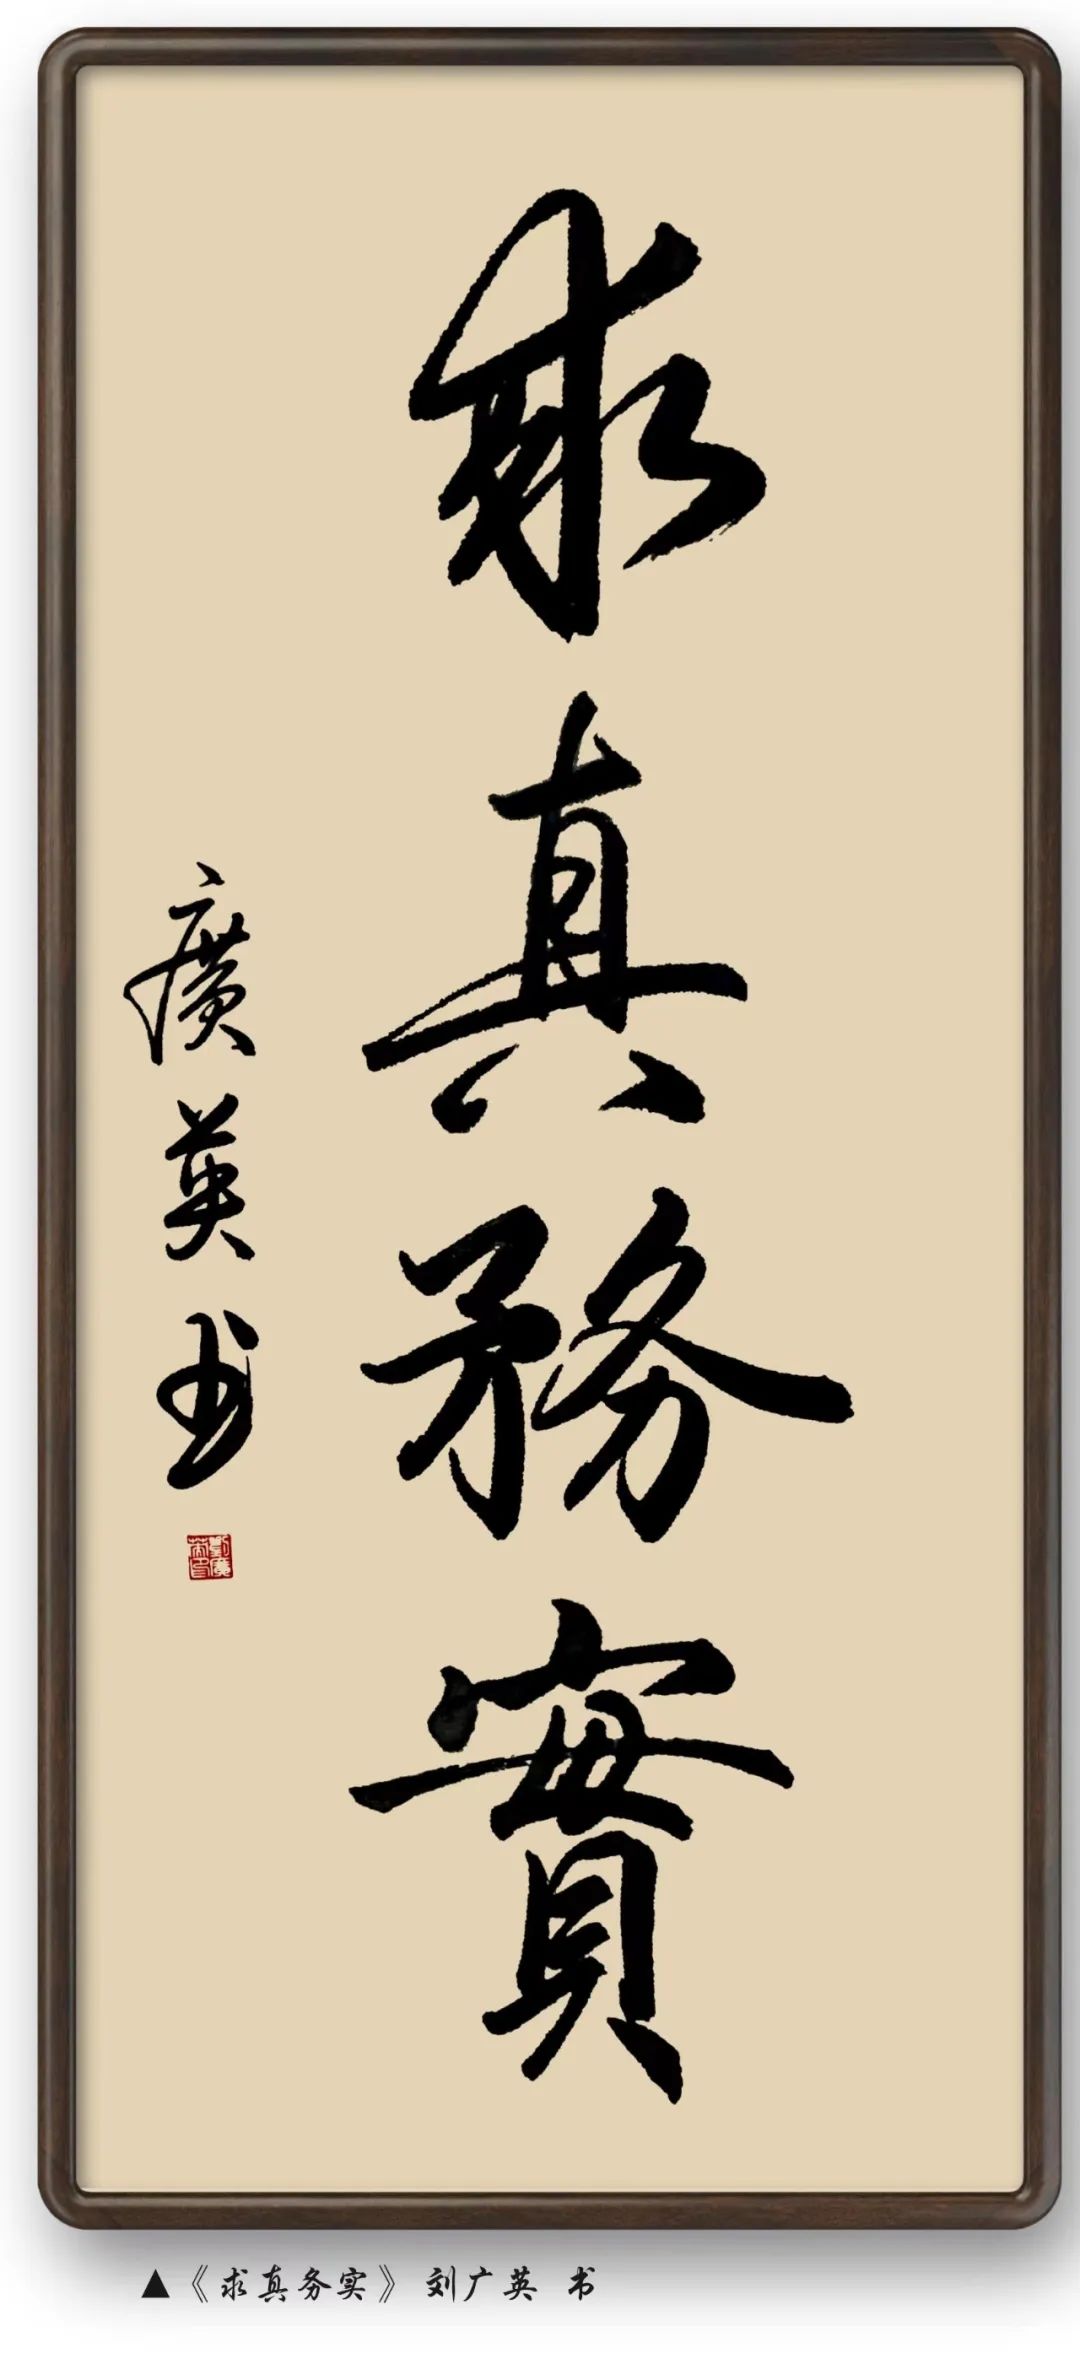 求真務實
廣英书
▲《求真务实》 刘广英 书